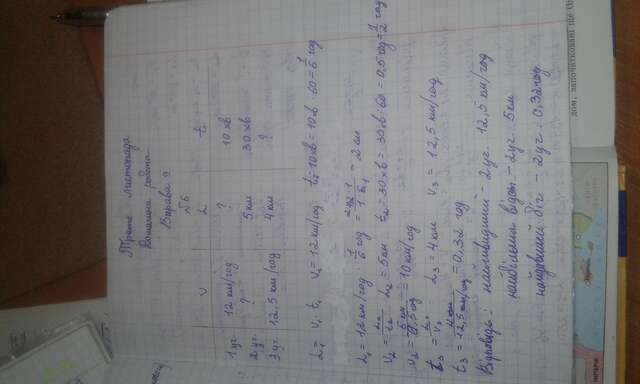 Трете листопада
Домашня робота
Вправа 9
№6
V L t
1 уч. 12 км/год ? 10 хв
2 уч. ? 5 км 30 хв
3 уч. 12,5 км/год 4 км ?
L₁ = v₁ · t₁ v₁ = 12 км/год t₁ = 10 хв = 10 хв : 60 = 1/6 год
L₁ = 12 км/год · 1/6 год = = 2 км
v₂ = L₂/t₂ L₂ = 5 км t₂ = 30 хв = 30 хв : 60 = 0,5 год = 1/2 год
v₂ = 5 км/0,5 год = 10 км/год
t₃ = L₃/v₃ L₃ = 4 км v₃ = 12,5 км/год
t₃ = 4 км/12,5 км/год = 0,32 год
Відповідь: найшвидший - 2 уч. 12,5 км/год
найбільша відст. - 2 уч. 5 км
найдовший біг - 2 уч. 0,32 год
дом, започатковані ще